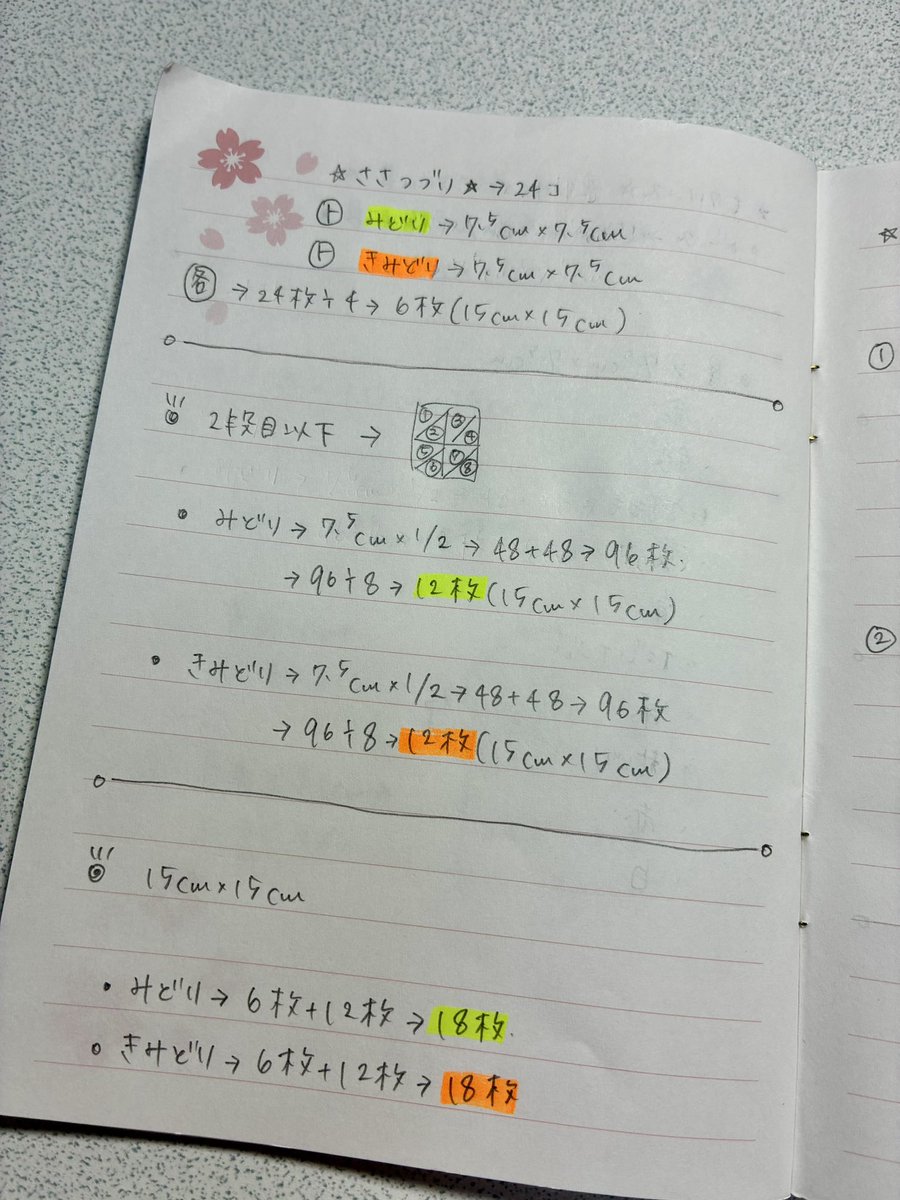 ☆ささつづり☆→24コ
㋣ みどり→7.5cm×7.5cm
㋣ きみどり→7.5cm×7.5cm
㊥各→24枚÷4→6枚(15cm×15cm)
2段目以下→
① ③
② ④
⑤ ⑦
⑥ ⑧
• みどり→7.5cm×1/2→48+48→96枚.
→96÷8→12枚(15cm×15cm)
• きみどり→7.5cm×1/2→48+48→96枚
→96÷8→12枚(15cm×15cm)
15cm×15cm
• みどり→6枚+12枚→18枚.
• きみどり→6枚+12枚→18枚
☆
①
②